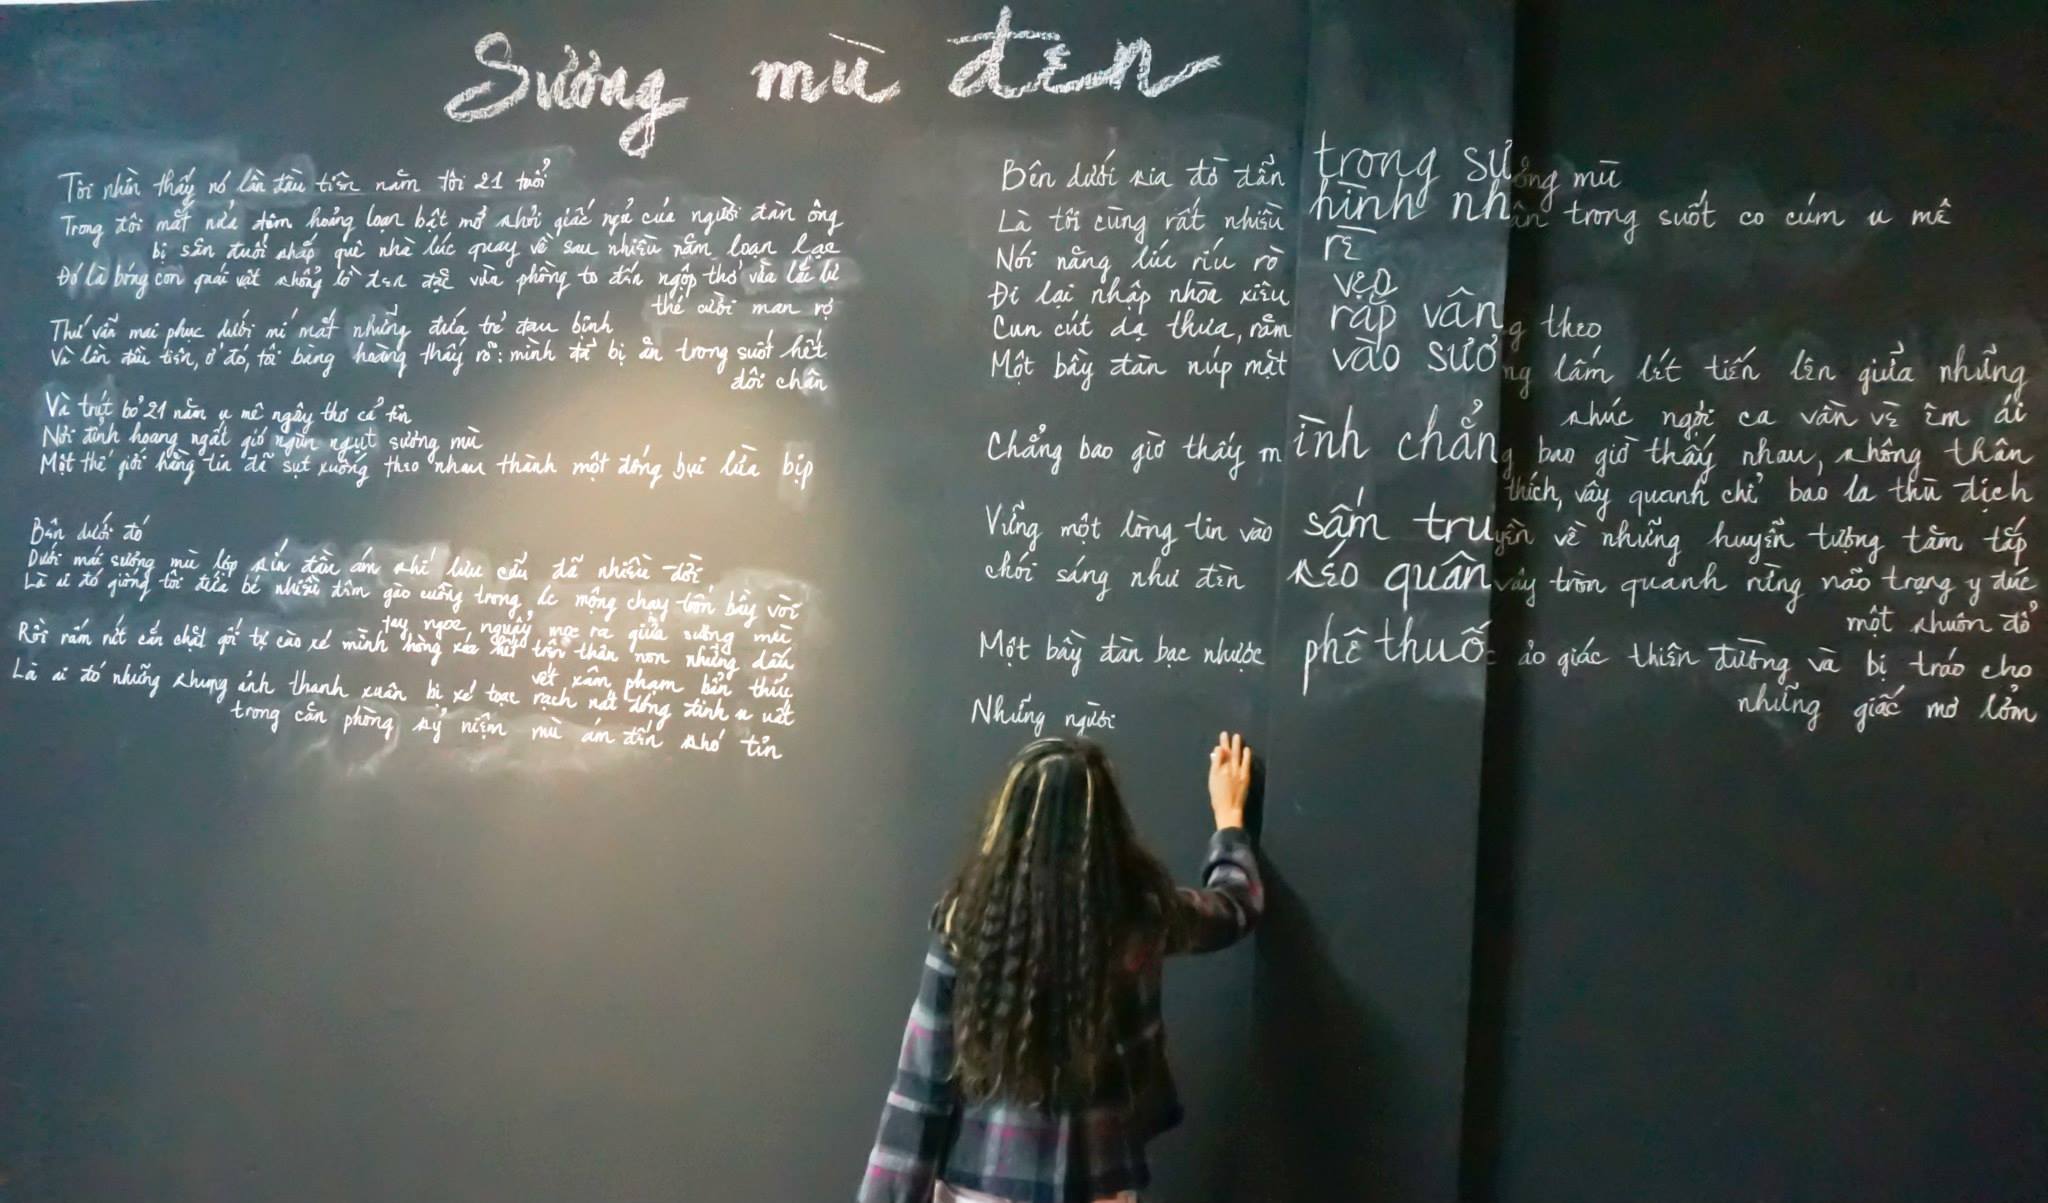 Sương mù đen
Tôi nhìn thấy nó lần đầu tiên năm tôi 21 tuổi
Trong đôi mắt nửa đêm hoảng loạn bật mở khỏi giấc ngủ của người đàn ông
bị săn đuổi khắp quê nhà lúc quay về sau nhiều năm loạn lạc
Đó là bóng con quái vật khổng lồ đen đặc vừa phồng to đến ngộp thở vừa lắc lư
thé cười man rợ
Thứ vẫn mai phục dưới mí mắt những đứa trẻ đau bệnh
Và lần đầu tiên, ở đó, tôi bàng hoàng thấy rõ: mình đã bị ăn trong suốt hết
đôi chân
Và trút bỏ 21 năm u mê ngây thơ cả tin
Nơi đỉnh hoang ngất gió ngùn ngụt sương mù
Một thế giới hằng tin đã sụt xuống theo nhau thành một đống bụi lừa bịp
Bên dưới đó
Dưới mái sương mù lớp kín đần ám khí lưu cữu đã nhiều đời
Là ai đó giống tôi đứa bé nhiều đêm gào cuồng trong ác mộng chạy trốn bầy vòi
tay ngọc nguậy mọc ra giữa sương mù
Rồi rấm rứt cắn chặt gối tự cào xé mình hòng xóa hết trên thân non những dấu
vết xâm phạm bẩn thỉu
Là ai đó những khung ảnh thanh xuân bị xé toạc rạch nát đóng đinh u uất
trong căn phòng kỷ niệm mù ám đến khó tin
Bên dưới kia đờ đẫn trong sương mù
Là tôi cùng rất nhiều hình nhân trong suốt co cúm u mê
Nói năng líu ríu rờ rẽ
Đi lại nhập nhòa xiêu vẹo
Cun cút dạ thưa, răm rắp vâng theo
Một bầy đàn núp mặt vào sương lấm lét tiến lên giữa những
khúc ngợi ca vần vè êm ái
Chẳng bao giờ thấy mình chẳng bao giờ thấy nhau, không thân
thích, vây quanh chỉ bao la thù địch
Vững một lòng tin vào sấm truyền về những huyễn tượng tăm tắp
chói sáng như đèn kéo quân vây tròn quanh rừng não trạng y đúc
một khuôn đổ
Một bầy đàn bạc nhược phê thuốc ảo giác thiên đường và bị tráo cho
những giấc mơ lởm
Những người